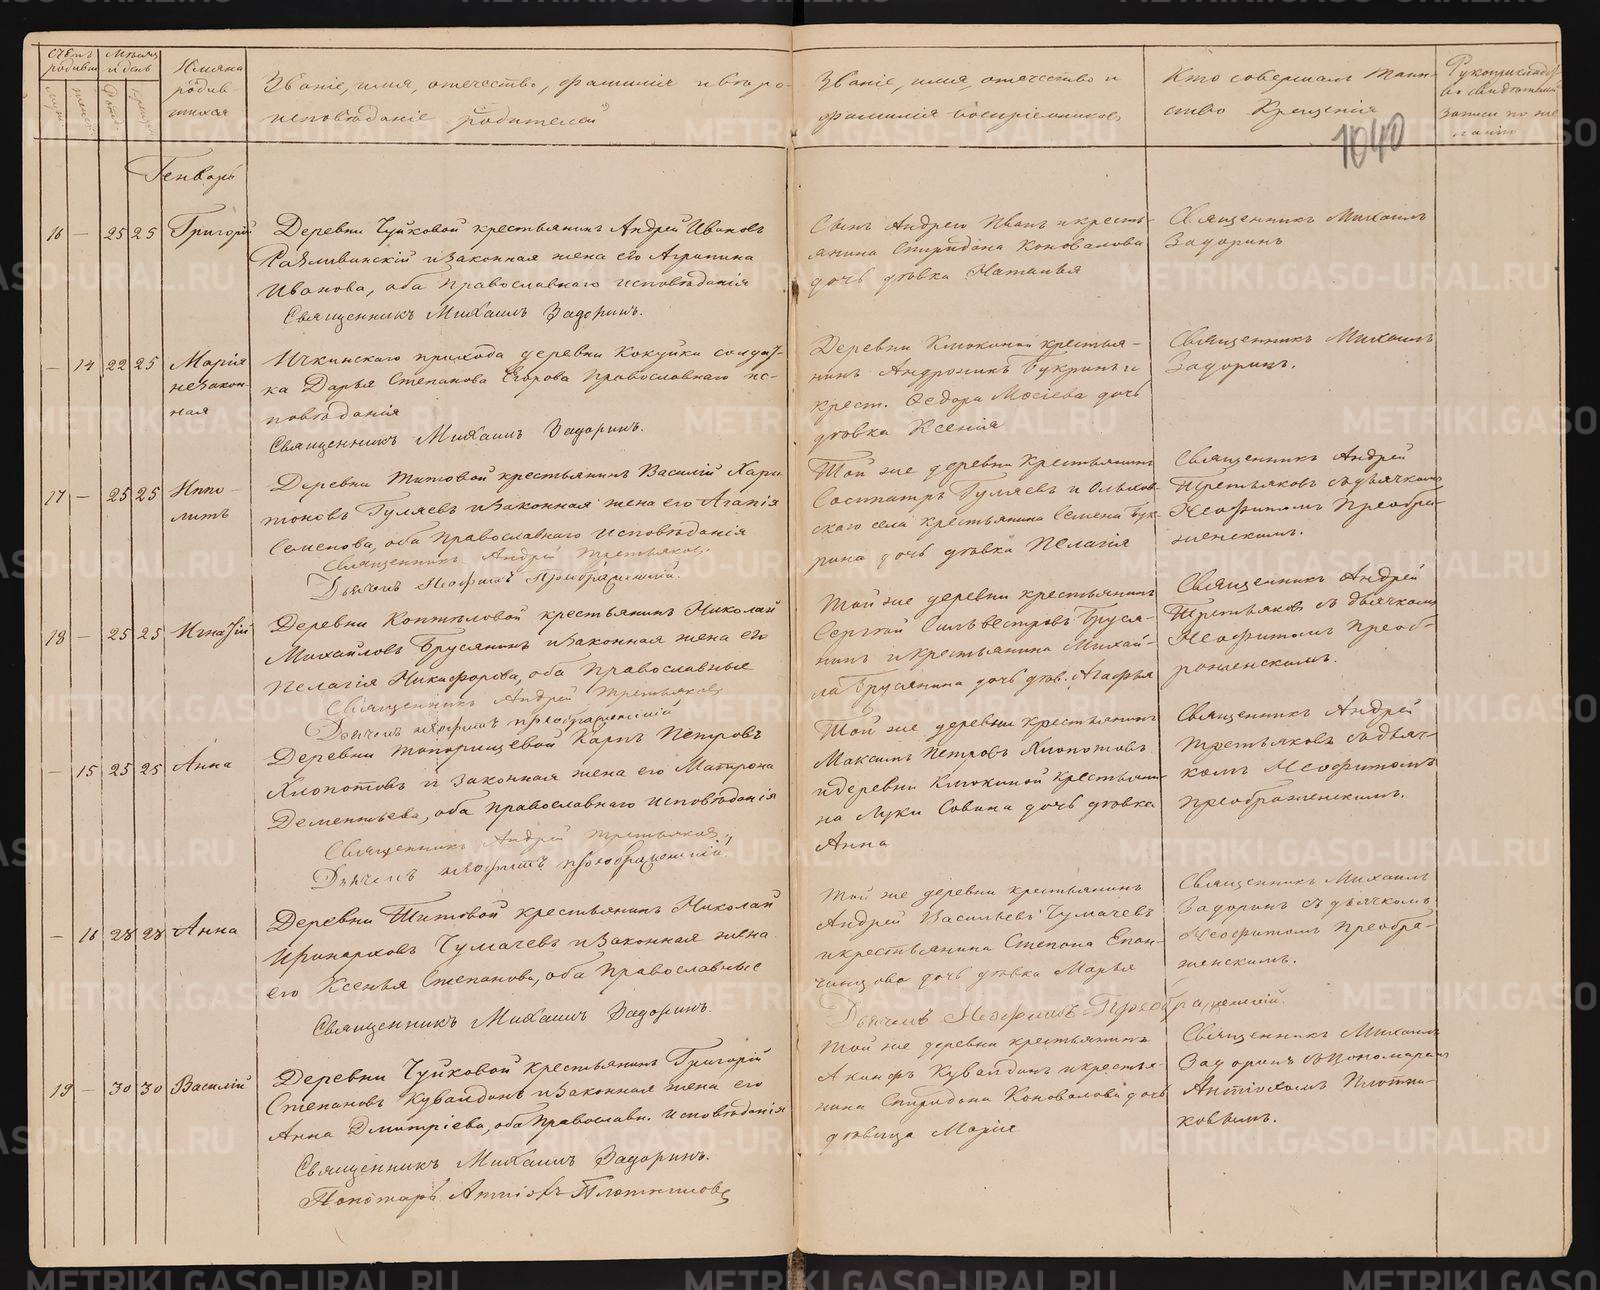 Счетъ родивш.
Мѣсяцъ и день
Имяна родившихся
Званіе, имя, отечество, фамилія и вѣроисповѣданіе родителей
Званіе, имя, отечество и фамилія воспріемниковъ
Кто совершалъ таинство Крещенія
Рукоприкладство свидѣтелей записи по желанію
1040
Генварь
16 — 25 25 Григорій
Деревни Чуйковой крестьянинъ Андрей Ивановъ
и законная жена его Агрипина
Иванова, оба Православнаго исповѣданія
Священникъ Михаилъ Задоринъ.
Сынъ Андреи Иванъ и кресть-
янина Спиридона Коновалова
дочь дѣвка Наталья
Священникъ Михаилъ
Задоринъ
— 14 22 25 Марія
незакон-
ная
Ичкинскаго прихода деревни Кокуйки солдат-
ка Дарья Степанова Егорова Православнаго ис-
повѣданія
Священникъ Михаилъ Задоринъ.
Деревни Клюкиной крестья-
нинъ Андроникъ Букринъ и
крест. Ѳедора Мосіева дочь
дѣвка Ксенія
Священникъ Михаилъ
Задоринъ.
17 — 25 25 Иппо-
литъ
Деревни Титовой крестьянинъ Василій Хари-
тоновъ Гуляевъ и законная жена его Агапія
Семенова, оба Православнаго исповѣданія
Священникъ Андрей Третьяковъ.
Дьячекъ Неофитъ Преображенскій.
Той же деревни крестьянинъ
Сосипатръ Гуляевъ и Ольхов-
скаго села крестьянина Семена Бук-
рина дочь дѣвка Пелагія
Священникъ Андрей
Третьяковъ съ дьячкомъ
Неофитомъ Преобра-
женскимъ.
18 — 25 25 Игнатій
Деревни Коптяловой крестьянинъ Николай
Михайловъ Брусянинъ и законная жена его
Пелагія Никифорова, оба Православные
Священникъ Андрей Третьяковъ
Дьячекъ Неофитъ Преображенскій
Той же деревни крестьянинъ
Сергѣй Сильвестровъ Бруся-
нинъ и крестьянина Михай-
ла Брусянина дочь дѣв. Агафья
Священникъ Андрей
Третьяковъ съ дьячкомъ
Неофитомъ Преоб-
раженскимъ.
— 15 25 25 Анна
Деревни Топорищевой Карпъ Петровъ
Хлопотовъ и законная жена его Матрона
Дементьева, оба православнаго исповѣданія
Священникъ Андрей Третьяковъ
Дьячекъ Неофитъ Преображенскій
Той же деревни крестьянинъ
Максимъ Петровъ Хлопотовъ
и деревни Клюкиной крестьяни-
на Луки Совина дочь дѣвка
Анна
Священникъ Андрей
Третьяковъ съ дьяч-
комъ Неофитомъ
Преображенскимъ.
— 16 28 28 Анна
Деревни Титовой крестьянинъ Николай
Иринарховъ Чумачевъ и законная жена
его Ксенья Степанова, оба Православные
Священникъ Михаилъ Задоринъ.
Той же деревни крестьянинъ
Андрей Васильевъ Чумачевъ
и крестьянина Степана Епан-
чинцова дочь дѣвка Марья
Дьячекъ Неофитъ Преображенскій.
Священникъ Михаилъ
Задоринъ съ дьячкомъ
Неофитомъ Преобра-
женскимъ.
19 — 30 30 Василій
Деревни Чуйковой крестьянинъ Григорій
Степановъ Кувалдинъ и законная жена его
Анна Дмитріева, оба Православн. исповѣданія
Священникъ Михаилъ Задоринъ.
Пономарь Антіохъ Плотниковъ
Той же деревни крестьянинъ
Акинфъ Кувалдинъ и крестья-
нина Спиридона Коновалова дочь
дѣвица Марія
Священникъ Михаилъ
Задоринъ съ Пономаремъ
Антіохомъ Плотни-
ковымъ.
METRIKI.GASO-URAL.RU